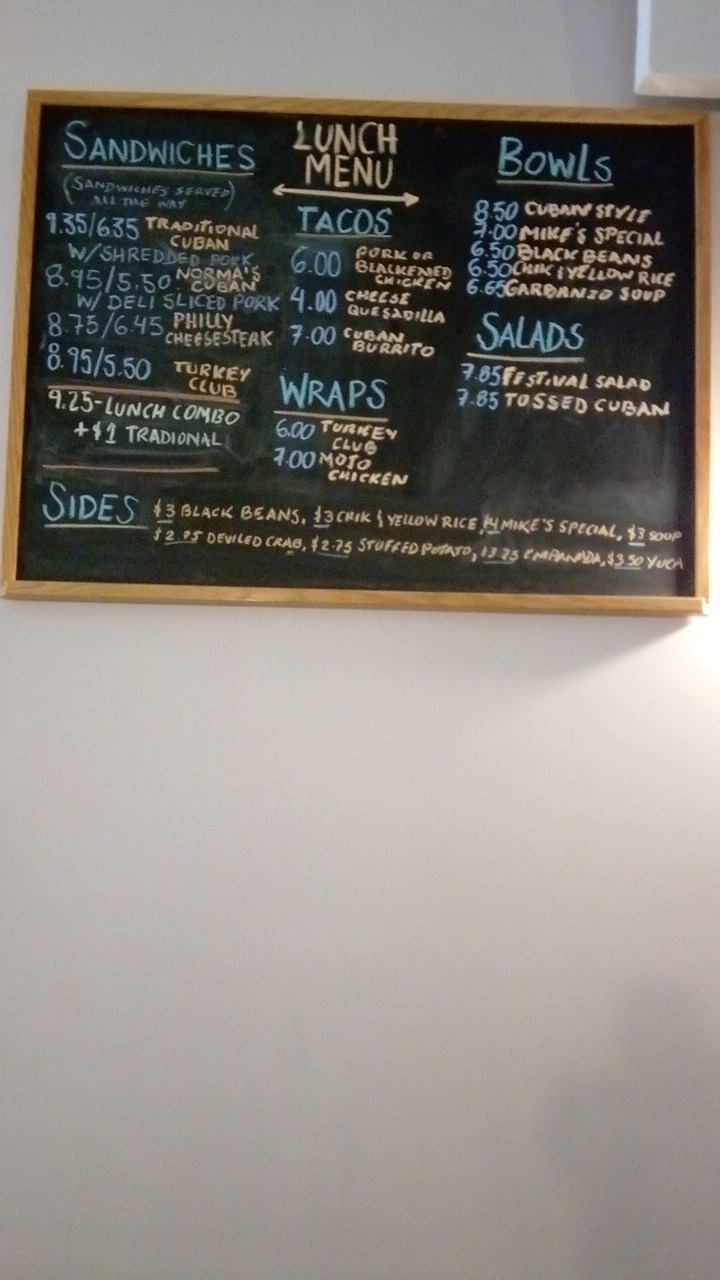 LUNCH
MENU
SANDWICHES
(SANDWICHES SERVED
ALL THE WAY)
9.35/6.35 TRADITIONAL
CUBAN
W/SHREDDED PORK
8.95/5.50 NORMA'S
CUBAN
W/ DELI SLICED PORK
8.75/6.45 PHILLY
CHEESESTEAK
8.95/5.50 TURKEY
CLUB
9.25-LUNCH COMBO
+$1 TRADIONAL
TACOS
6.00 PORK OR
BLACKENED
CHICKEN
4.00 CHEESE
QUESADILLA
7.00 CUBAN
BURRITO
WRAPS
6.00 TURKEY
CLUB
7.00 MOJO
CHICKEN
BOWLS
8.50 CUBAN STYLE
7.00 MIKE'S SPECIAL
6.50 BLACK BEANS
6.50 CHIK & YELLOW RICE
6.65 GARBANZO SOUP
SALADS
7.85 FESTIVAL SALAD
7.85 TOSSED CUBAN
SIDES
$3 BLACK BEANS, $3 CHIK & YELLOW RICE, $4 MIKE'S SPECIAL, $3 SOUP
$2.75 DEVILED CRAB, $2.75 STUFFED POTATO, $3.25 EMPANADA, $3.50 YUCA